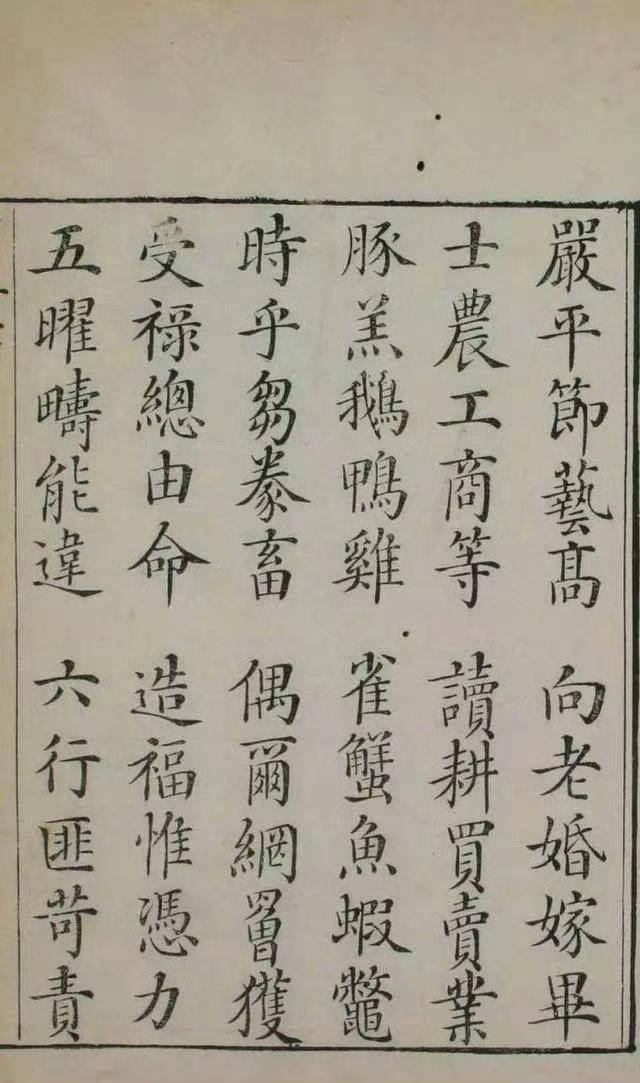 嚴平節藝高 向老婚嫁畢
士農工商等 讀耕買賣業
豚羔鵝鴨雞 雀蟹魚蝦鼈
時乎芻豢畜 偶爾網罾獲
受祿總由命 造福惟憑力
五曜疇能違 六行匪苛責